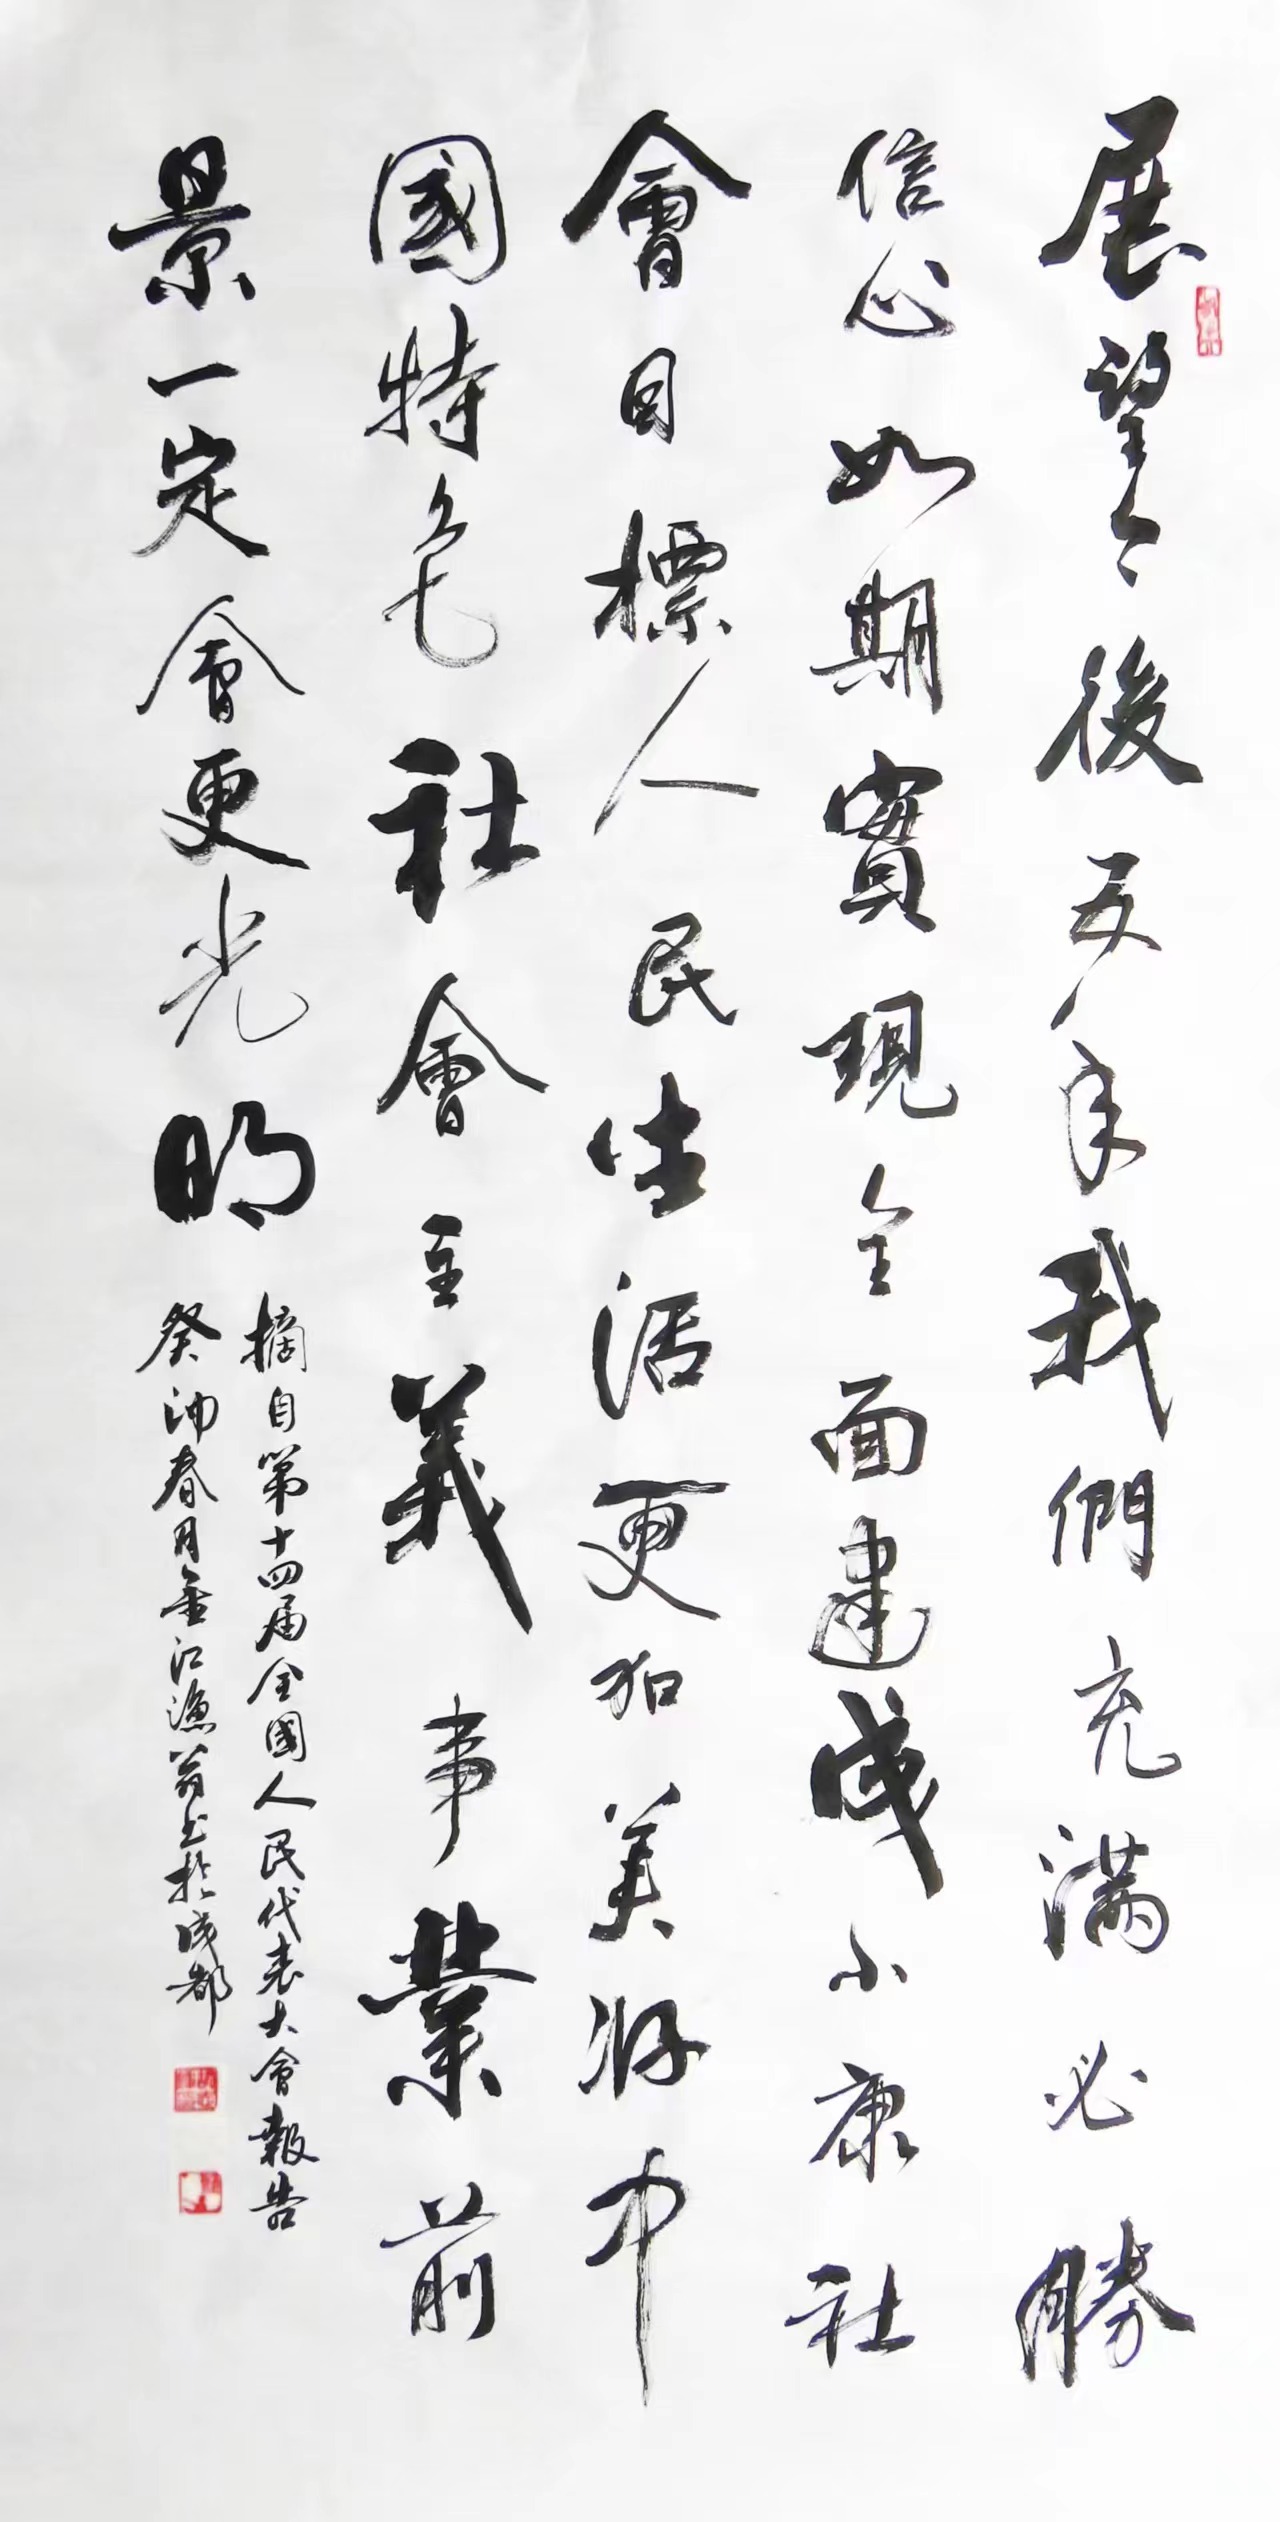 展望今後五年我們充滿必勝
信心如期實現全面建成小康社
會目標人民生活更加美好中
國特色社會主義事業前
景一定會更光明
摘自第十四届全國人民代表大會報告
癸卯春月金江漁翁书於成都